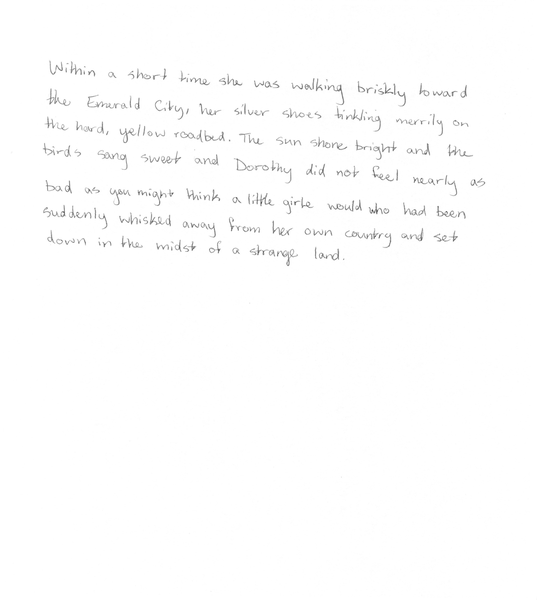 Within a short time she was walking briskly toward
the Emerald City, her silver shoes tinkling merrily on
the hard, yellow roadbed. The sun shone bright and the
birds sang sweet and Dorothy did not feel nearly as
bad as you might think a little girle would who had been
suddenly whisked away from her own country and set
down in the midst of a strange land.